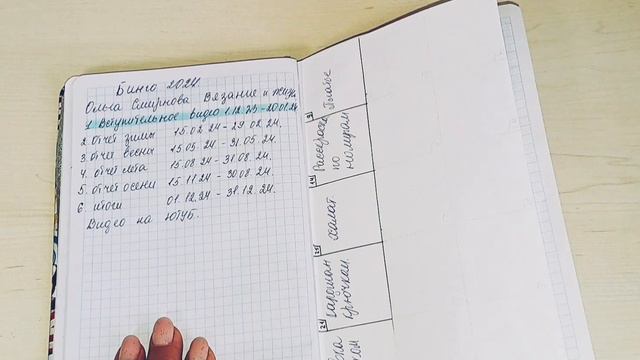 Бинго 2024
Ольга Смирнова Вязание и
1 Вступительное видео 1.12.23-20.01.24
2 отчет зимы 15.02.24-29.02.24.
3 отчет весны 15.05.24-31.05.24.
4. отчет лета 15.08.24-31.08.24.
5. отчет осени 15.11.24-30.08.24.
6. итоги 01.12.24-31.12.24.
Видео на ЮТУБ.
Платье
по
номерам
14
Халат
24
крючком